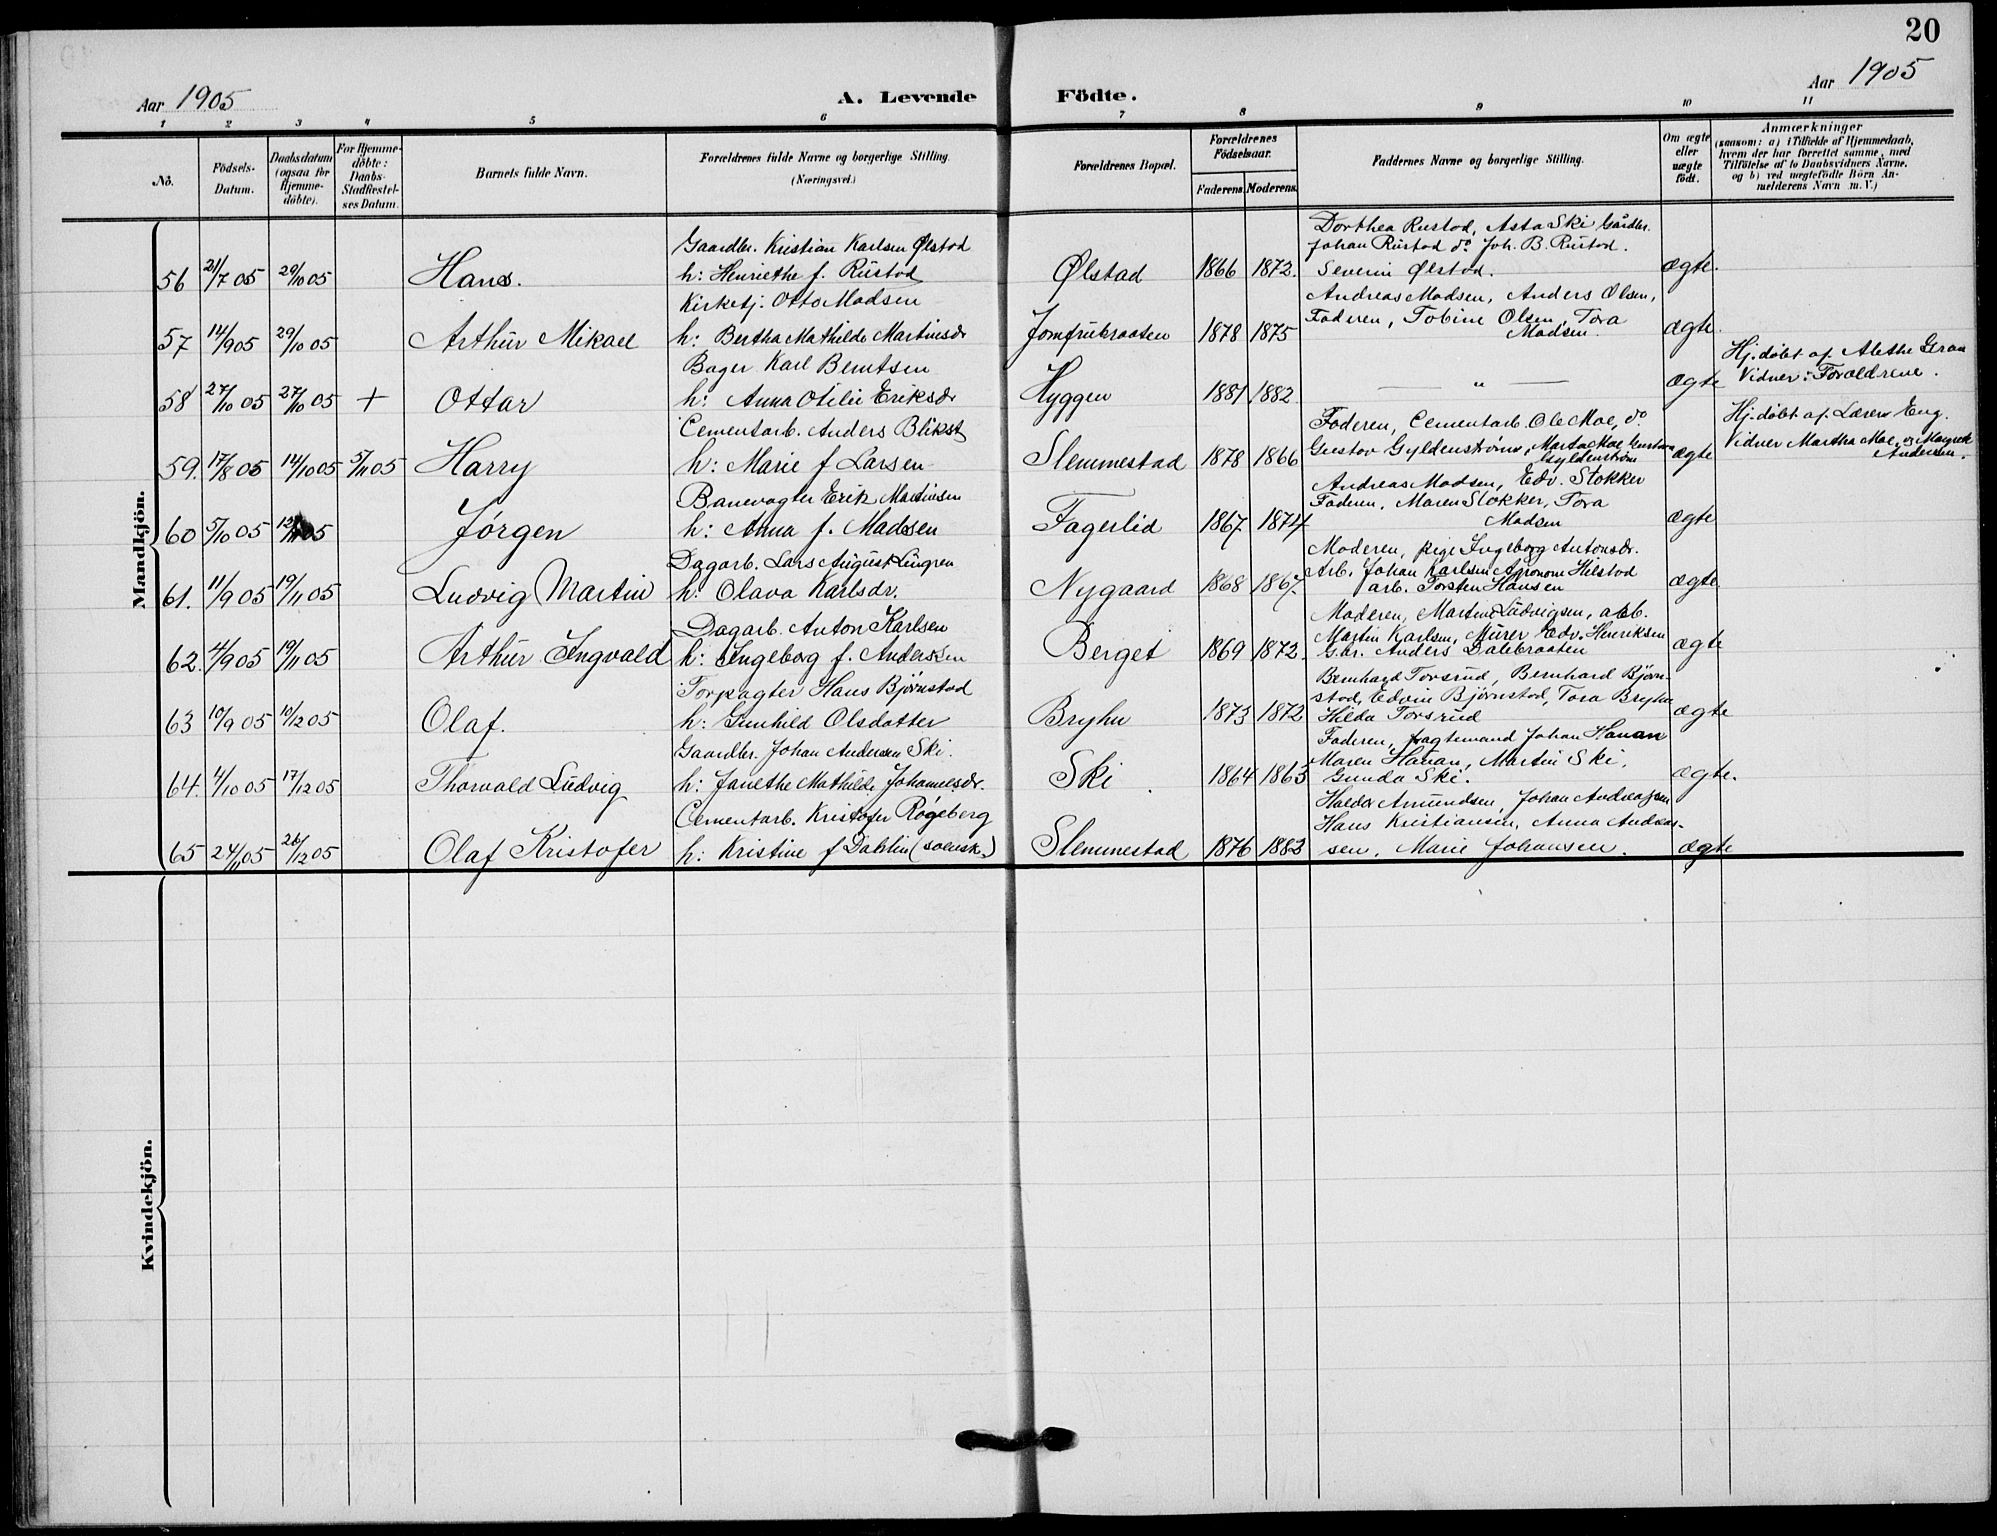 20
Aar 1905
A. Levende Födte.
Aar 1905
1 2 3 4 5 6 7 8 9 10 11
No.
Födsels-Datum.
Daabsdatum (ogsaa for Hjemme-döbte).
For Hjemme-döbte: Daabs-Stadfæstel-ses Datum.
Barnets fulde Navn.
Forældrenes fulde Navne og borgerlige Stilling.
(Næringsvei.)
Forældrenes Bopæl.
Forældrenes Födselsaar.
Faderens. Moderens.
Faddernes Navne og borgerlige Stilling.
Om ægte eller uægte födt.
Anmærkninger
(saasom: a) i Tilfælde af Hjemmedaab,
hvem der har forrettet samme, med
Tilföielse af to Daabsvidners Navne,
og b) ved uægtefödte Börn An-
melderens Navn m. V.)
Mandkjön.
Gaardbr. Kristian Karlsen Ølstad
Dorthea Rustad, Asta Ski Gårdbr.
Johan Rustad do. Joh. B. Rustad.
56 21/7 05 29/10 05 Hans. h: Henriethe f. Rustad Ølstad 1866 1872. Severin Ølstad. ægte.
Kirketj. Otto Madsen
Andreas Madsen, Anders Olsen,
Faderen, Tobine Olsen, Tora
57 14/9 05 29/10 05 Arthur Mikael h: Bertha Mathilde Martinsdr Jomfrubraaten 1878 1875 Madsen ægte.
Bager Karl Berntsen
Hj. døbt af Alethe Gran
58 27/10 05 27/10 05 + Ottar h: Anna Otilie Eriksdr Hyggen 1881 1882 — " — ægte Vidner: Forældrene.
Cementarb. Anders Blikst
Faderen, Cementarb. Ole Moe, do
Hj. døbt af Lærer Eng.
59. 17/8 05 14/10 05 5/11 05 Harry h: Marie f Larsen Slemmestad 1878 1866 Gustav Gyldenstrøm, Marta Moe, Gyldenstrøm ægte Vidner Martha Moe, og Andersen.
Banevogter Erik Martinsen
Andreas Madsen, Edv. Stokker
Faderen, Maren Stokker, Tora
60 5/10 05 05 Jørgen h: Anna f. Madsen Fagerlid 1867 1874 Madsen ægte
Dagarb. Lars August Lingren
Moderen, pige Ingeborg Antonsdr.
Arb. Johan Karlsen Agronom Hilstad
61. 11/9 05 19/11 05 Ludvig Martin h: Olava Karlsdr. Nygaard 1868 1867. arb. Torsten Hansen ægte
Dagarb. Anton Karlsen
Moderen, Martin Ludvigsen, arb.
Martin Karlsen, Murer Edv. Henriksen
62. 4/9 05 19/11 05 Arthur Ingvald h: Ingeborg f. Andersen Berget 1869 1872. Gbr. Anders Dalebraaten ægte
Forpagter Hans Bjørnstad
Bernhard Torsrud, Bernhard Bjørn-
stad, Edvin Bjørnstad, Tora Bryhn
63 10/9 05 10/12 05 Olaf. h: Gunhild Olsdatter Bryhn 1873 1872 Hilda Torsrud ægte
Gaardbr. Johan Andersen Ski.
Faderen, fragtemand Johan Hanan
Maren Hanan, Martin Ski,
64. 4/10 05 17/12 05 Thorvald Ludvig h: Janethe Mathilde Johannesdr. Ski 1864 1863 Gunda Ski. ægte.
Cementarb. Kristofer Røgeberg
Haldor Amundsen, Johan Andreassen
Hans Kristiansen, Anna Andreas-
65 24/11 05 26/12 05 Olaf Kristofer h: Kristine f Dahlin (svensk) Slemmestad 1876 1883 sen, Marie Johansen. ægte
Kvindekjön.